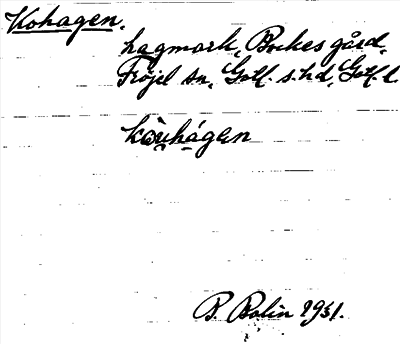 Kohagen.
hagmark, Bockes gård,
Fröjel sn, Gotl. s. hd, Gotl. l.
kòu̯hágen
B. Bolin 1931.